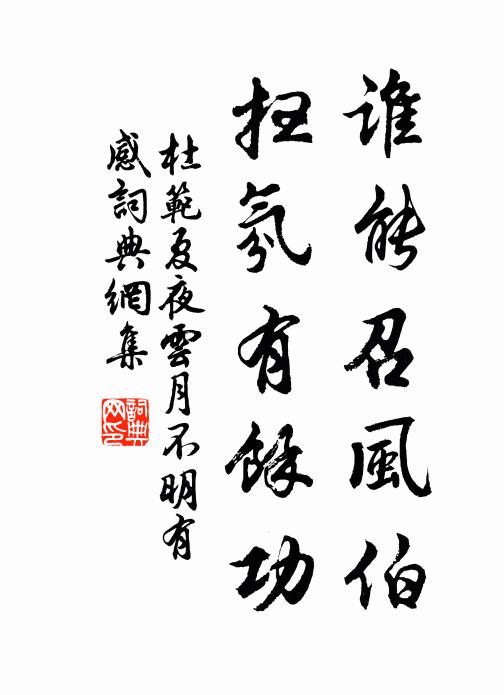 誰能召風伯
扫氛有餘功
杜範夏夜雲月不明有
感詞典網集
詞典网印